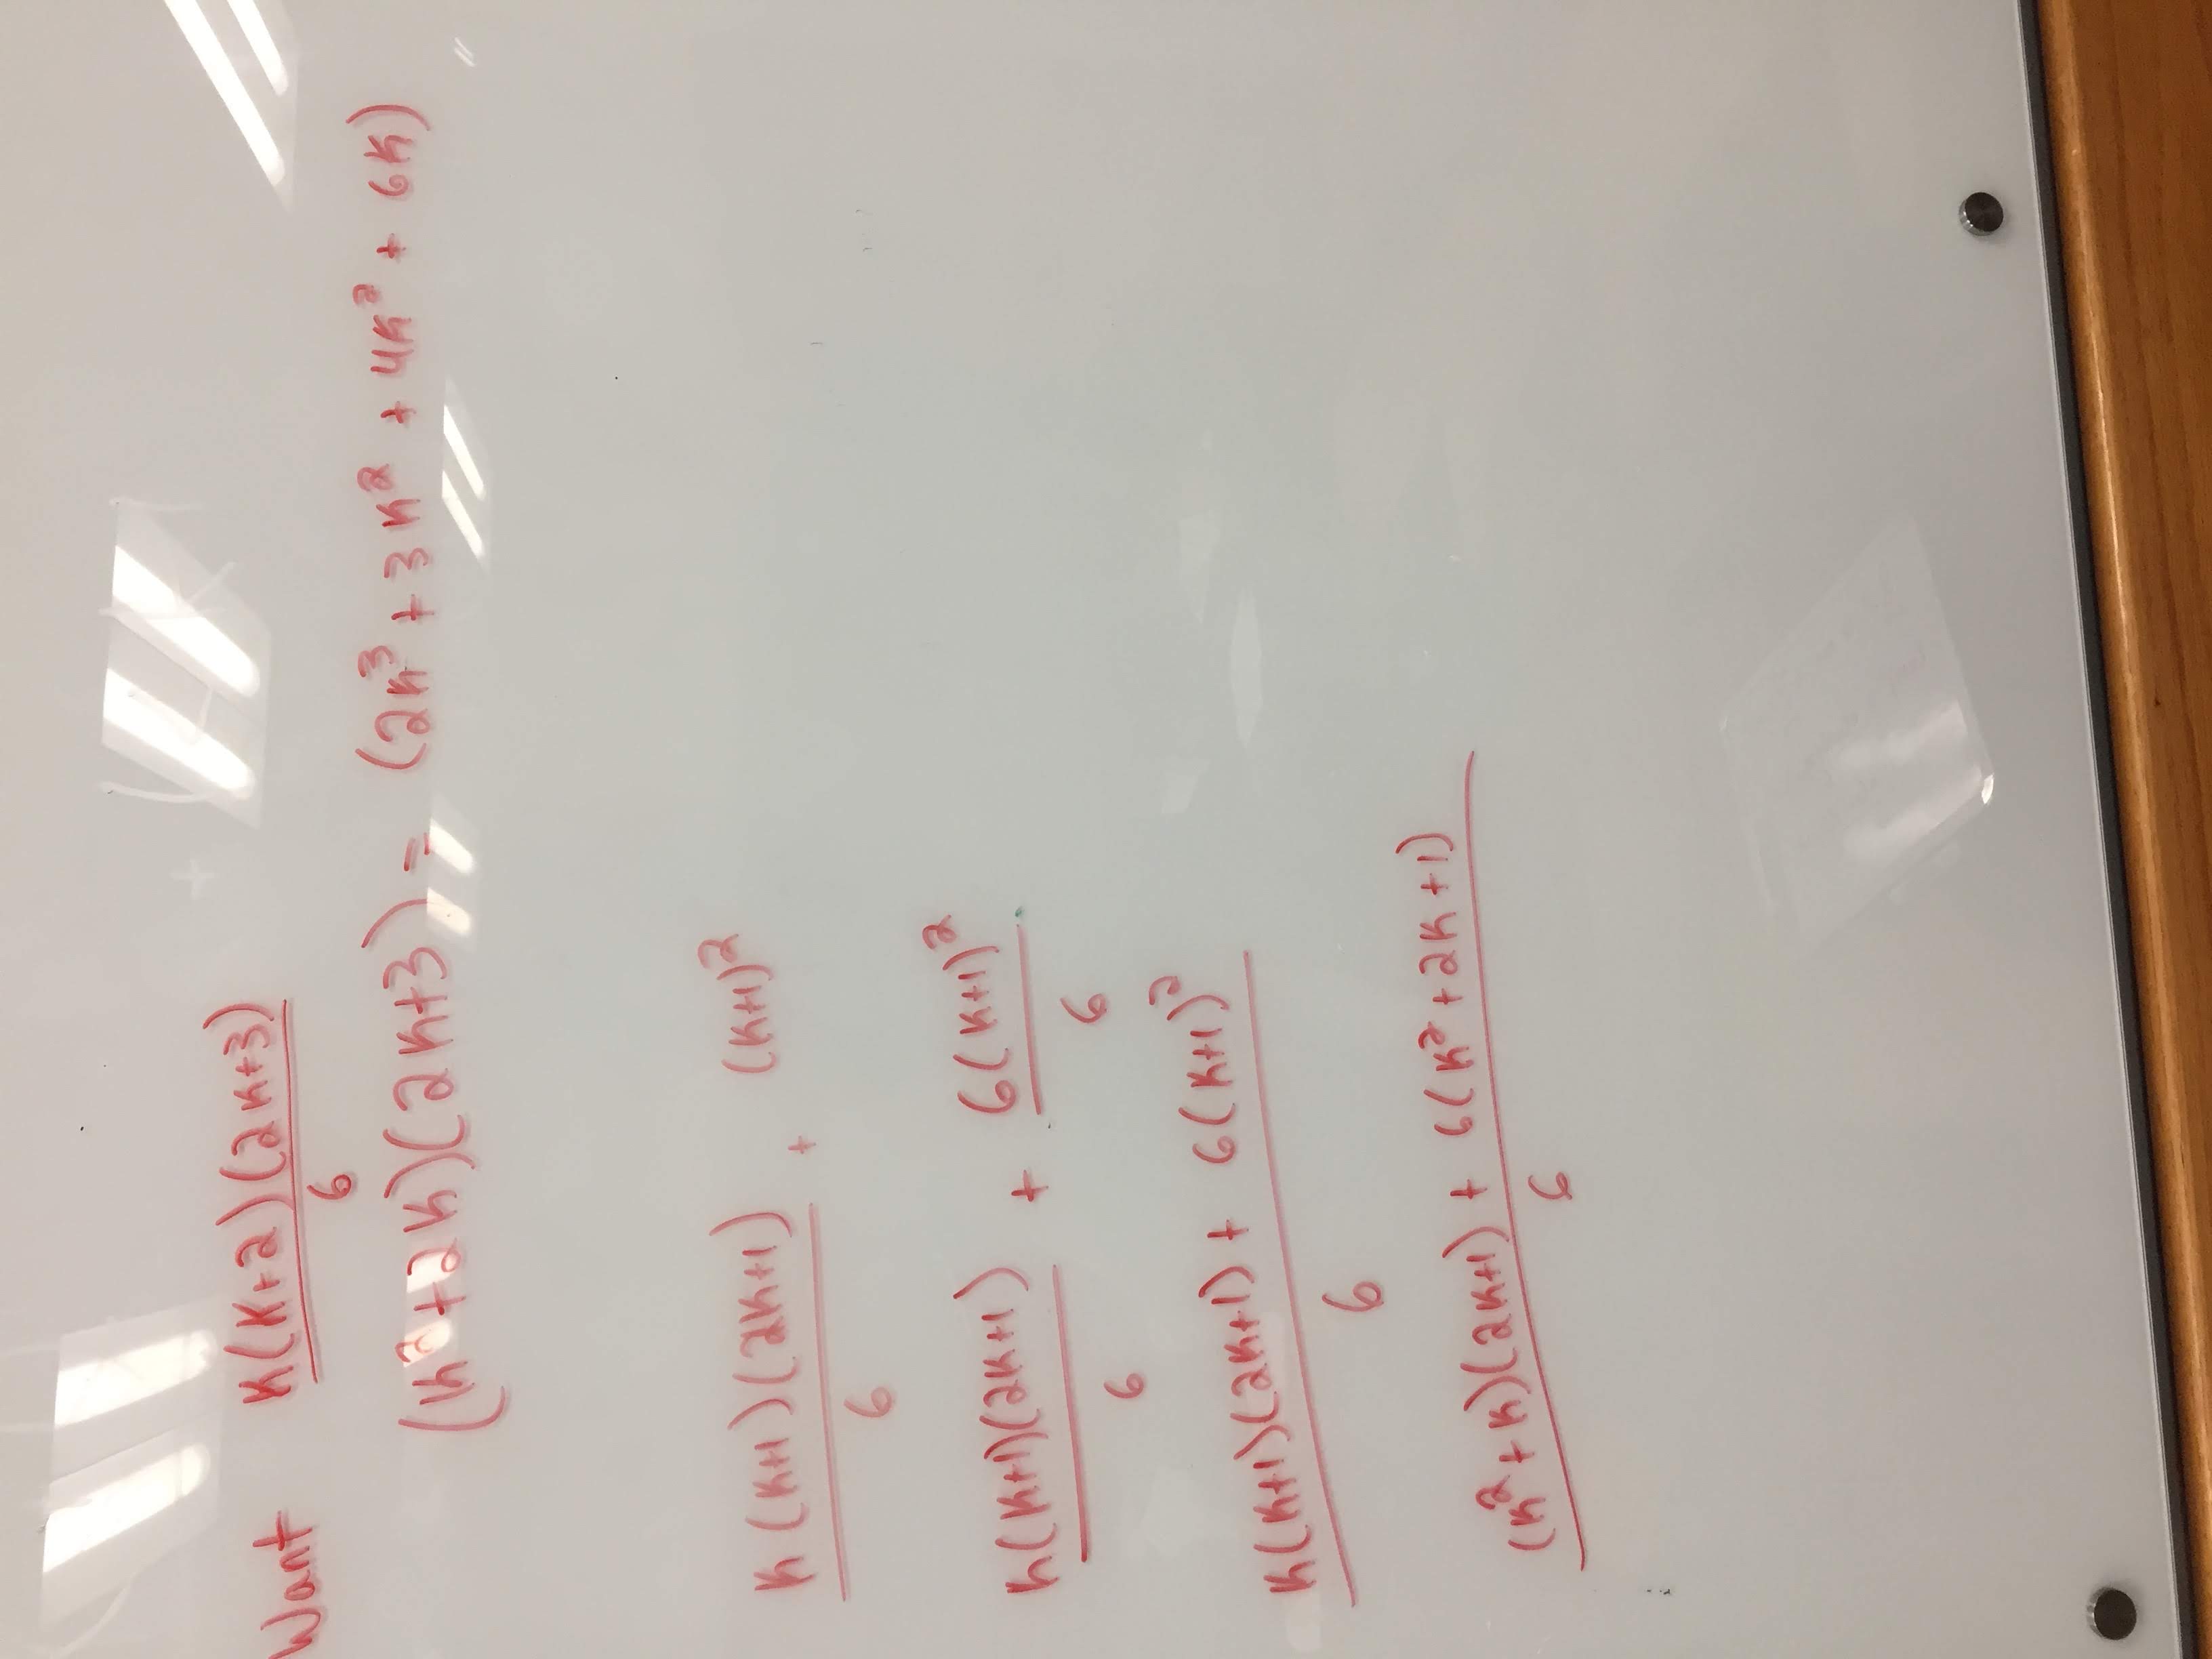 Want k(k+2)(2k+3)
6
(k²+2k)(2k+3) = (2k³ + 3k² + 4k² + 6k)
k(k+1)(2k+1) + (k+1)²
6
k(k+1)(2k+1) + 6(k+1)²
6 6
k(k+1)(2k+1) + 6(k+1)²
6
(k²+k)(2k+1) + 6(k²+2k+1)
6